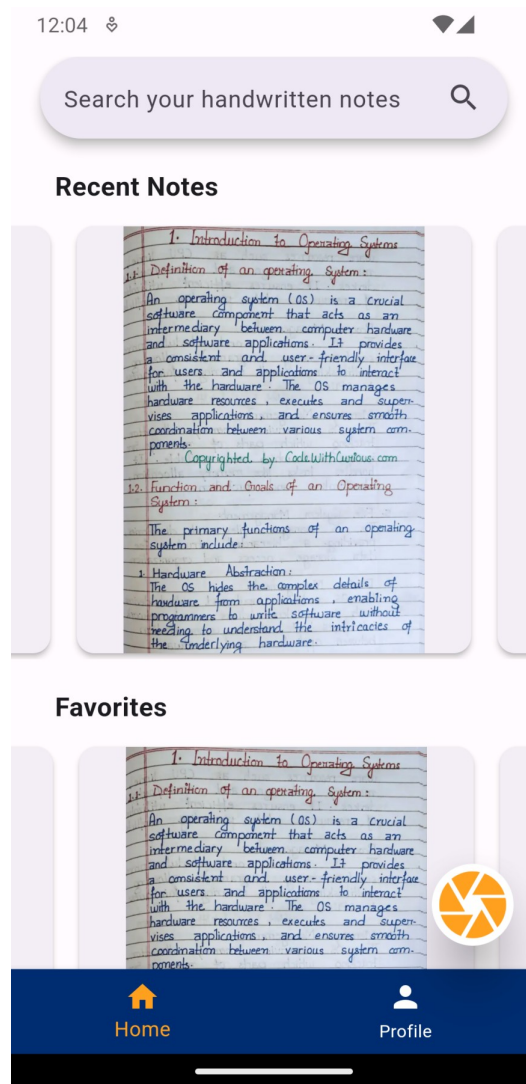 12:04
Search your handwritten notes
Recent Notes
1. Introduction to Operating Systems
1.1. Definition of an operating System :
An operating system (OS) is a crucial
software component that acts as an
intermediary between computer hardware
and software applications. It provides
a consistent and user-friendly interface
for users and applications to interact
with the hardware. The OS manages
hardware resources, executes and super-
vises applications, and ensures smooth
coordination between various system com-
ponents.
Copyrighted by CodeWithCurious.com
1.2. Function and Goals of an Operating
System :
The primary functions of an operating
system include:
1. Hardware Abstraction:
The OS hides the complex details of
hardware from applications, enabling
programmers to write software without
needing to understand the intricacies of
the underlying hardware.
Favorites
1. Introduction to Operating Systems
1.1. Definition of an operating System :
An operating system (OS) is a crucial
software component that acts as an
intermediary between computer hardware
and software applications. It provides
a consistent and user-friendly interface
for users and applications to interact
with the hardware. The OS manages
hardware resources, executes and super-
vises applications, and ensures smooth
coordination between various system com-
ponents.
Home
Profile